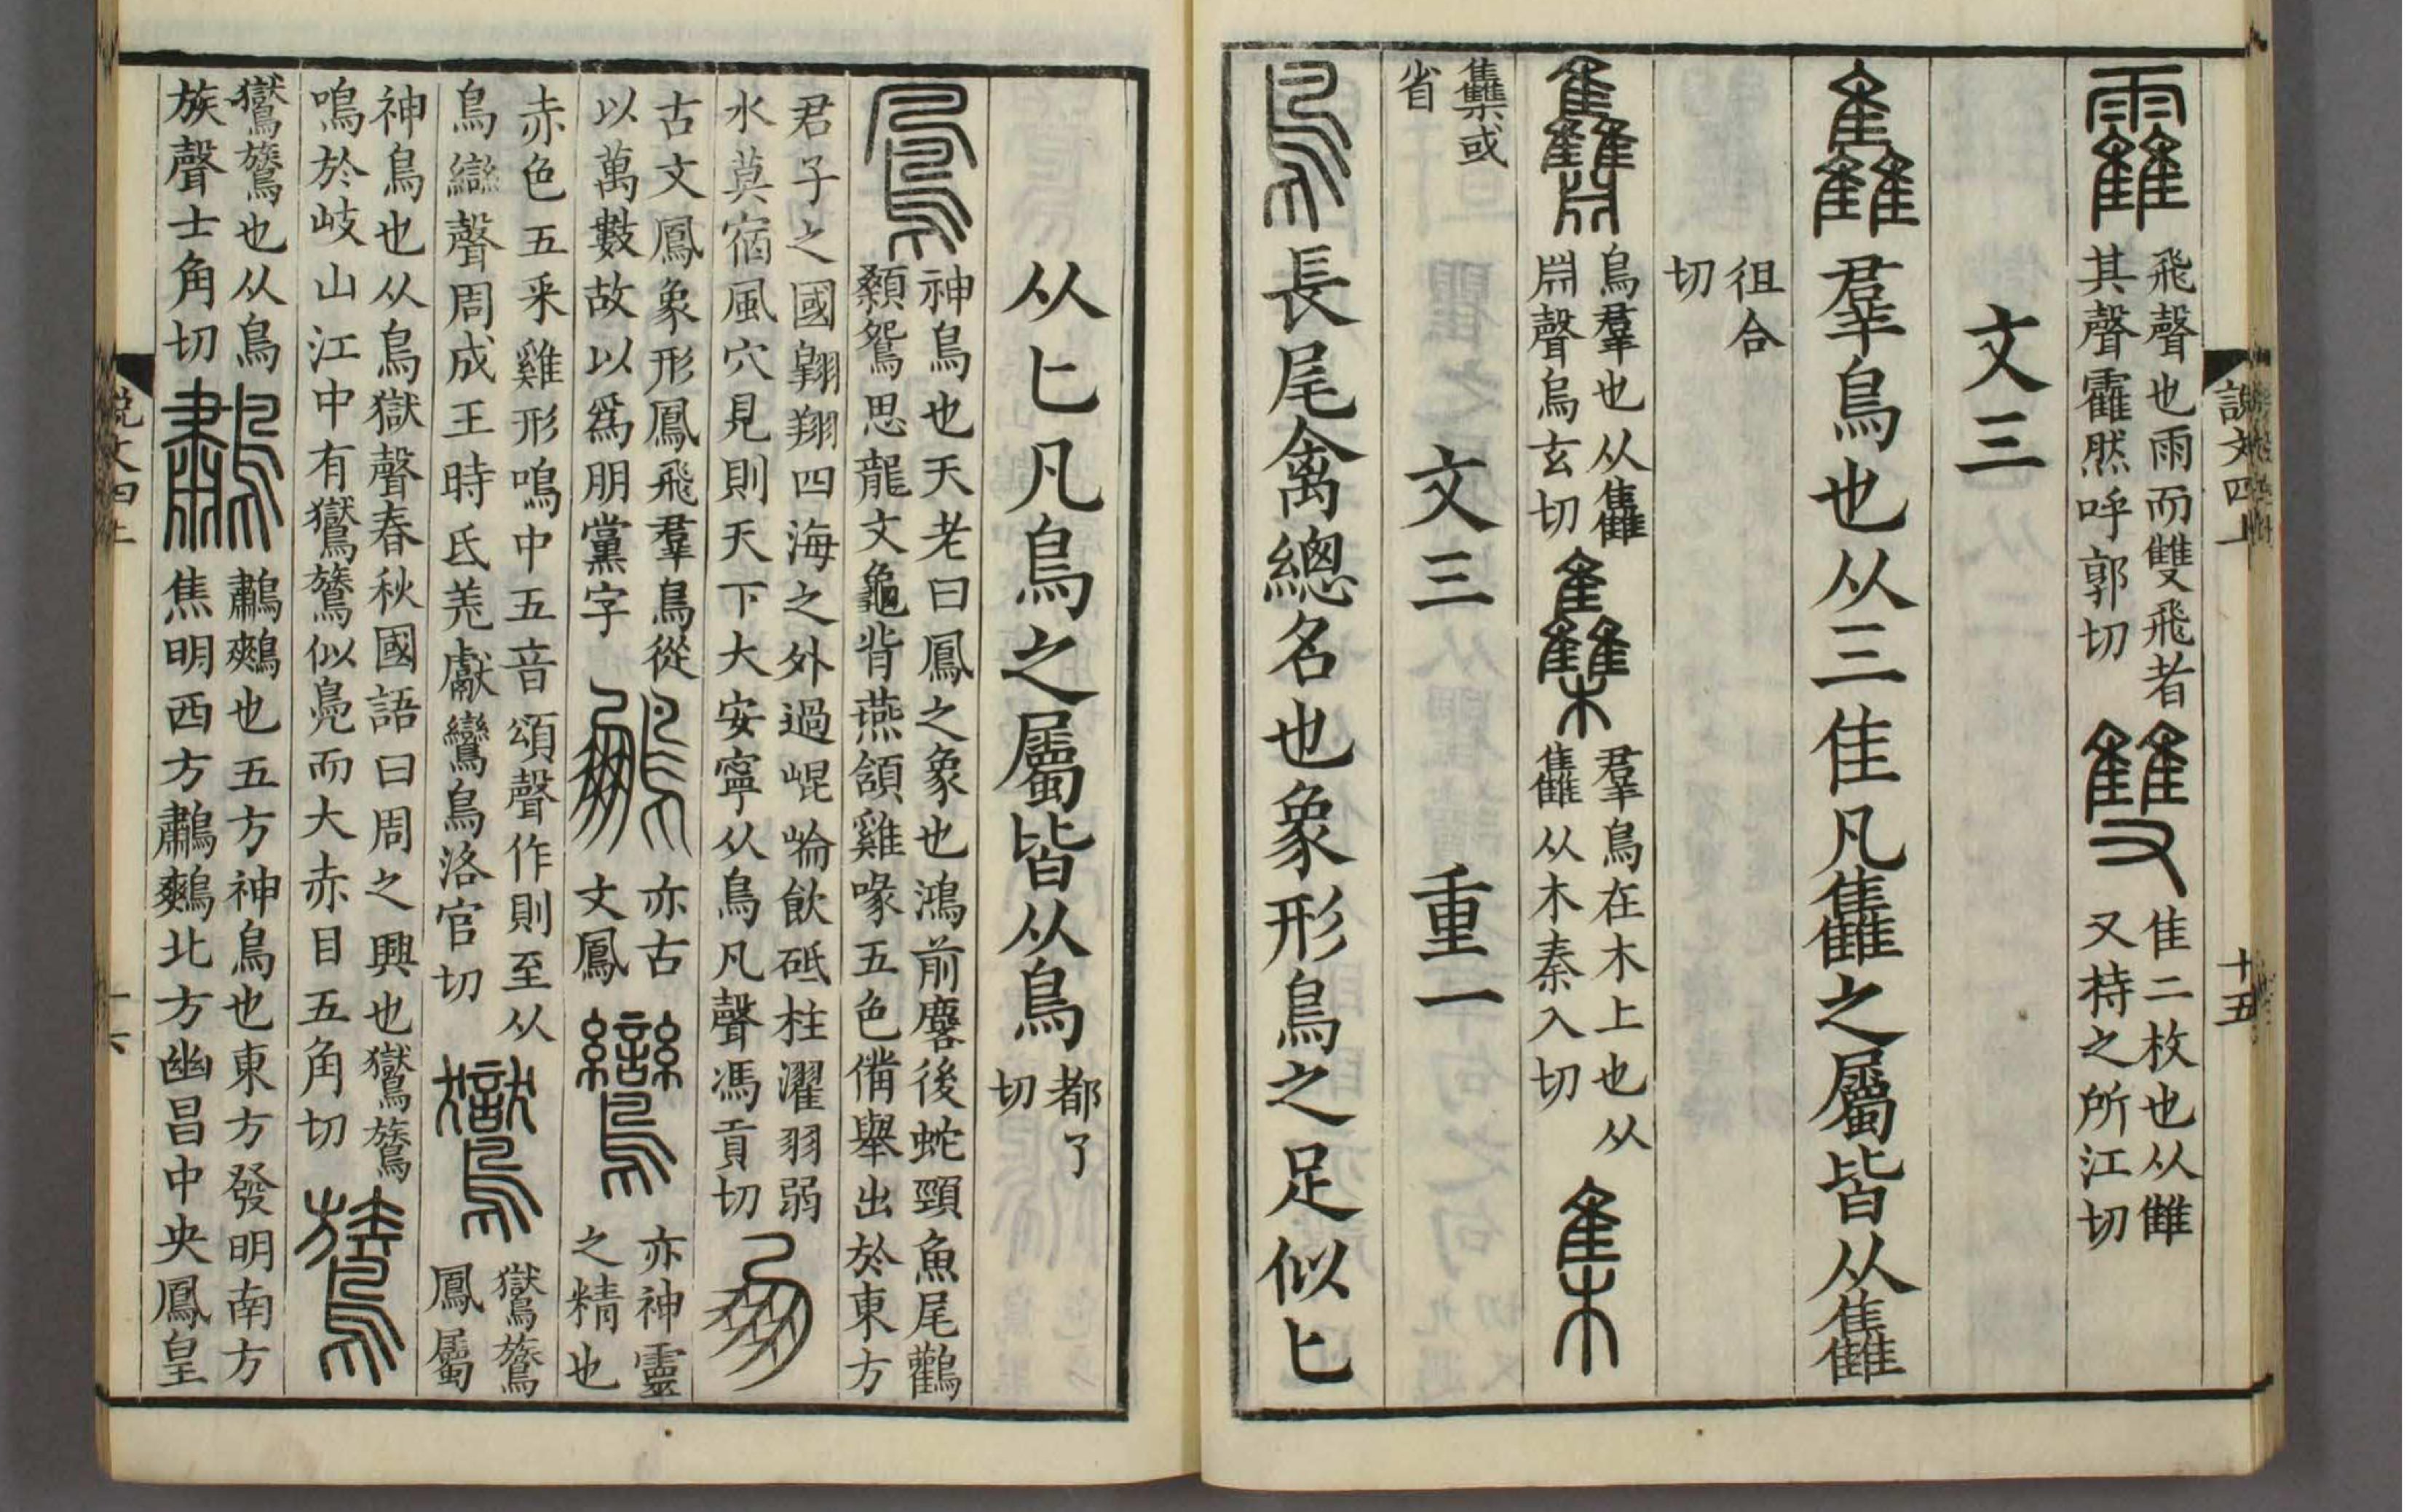 說文四上 十五
靃飛聲也雨而雙飛者其聲靃然呼郭切雙隹二枚也从雔又持之所江切
文三
雥羣鳥也从三隹凡雥之屬皆从雥
徂合切
鳥羣也从雥𣶒聲烏玄切雧羣鳥在木上也从雥从木秦入切集
雧或省 文三 重一
鳥長尾禽總名也象形鳥之足似匕
从匕凡鳥之屬皆从鳥都了切
鳳神鳥也天老曰鳳之象也鴻前麐後蛇頸魚尾鸛顙鴛思龍文龜背燕頷雞喙五色備舉出於東方
君子之國翺翔四海之外過崐崘飲砥柱濯羽弱水莫宿風穴見則天下大安寧从鳥凡聲馮貢切朋
古文鳳象形鳳飛羣鳥從以萬數故以爲朋黨字鵬亦古文鳳鸞亦神靈之精也
赤色五采雞形鳴中五音頌聲作則至从鳥䜌聲周成王時氐羌獻鸞鳥洛官切鸑鸑鷟鳳屬
神鳥也从鳥獄聲春秋國語曰周之興也鸑鷟鳴於岐山江中有鸑鷟似鳧而大赤目五角切鷟
鸑鷟也从鳥族聲士角切鷫鷫鷞也五方神鳥也東方發明南方焦明西方鷫鷞北方幽昌中央鳳皇
說文四上 十六